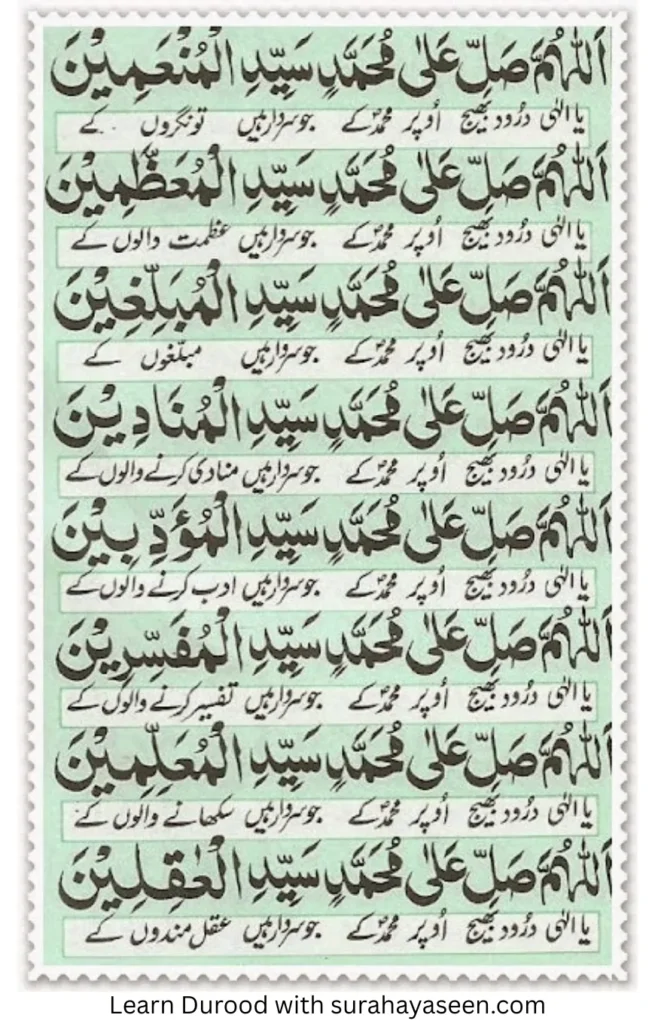 اَللّٰهُمَّ صَلِّ عَلٰى مُحَمَّدٍ سَيِّدِ الْمُنْعَمِيْنَ
یا الٰہی درُود بھیج اُوپر محمدؐ کے جو سردار ہیں تونگروں کے
اَللّٰهُمَّ صَلِّ عَلٰى مُحَمَّدٍ سَيِّدِ الْمُعَظَّمِيْنَ
یا الٰہی درُود بھیج اُوپر محمدؐ کے جو سردار ہیں عظمت والوں کے
اَللّٰهُمَّ صَلِّ عَلٰى مُحَمَّدٍ سَيِّدِ الْمُبَلِّغِيْنَ
یا الٰہی درُود بھیج اُوپر محمدؐ کے جو سردار ہیں مبلّغوں کے
اَللّٰهُمَّ صَلِّ عَلٰى مُحَمَّدٍ سَيِّدِ الْمُنَادِيْنَ
یا الٰہی درُود بھیج اُوپر محمدؐ کے جو سردار ہیں منادی کرنے والوں کے
اَللّٰهُمَّ صَلِّ عَلٰى مُحَمَّدٍ سَيِّدِ الْمُؤَدِّبِيْنَ
یا الٰہی درُود بھیج اُوپر محمدؐ کے جو سردار ہیں ادب کرنے والوں کے
اَللّٰهُمَّ صَلِّ عَلٰى مُحَمَّدٍ سَيِّدِ الْمُفَسِّرِيْنَ
یا الٰہی درُود بھیج اُوپر محمدؐ کے جو سردار ہیں تفسیر کرنے والوں کے
اَللّٰهُمَّ صَلِّ عَلٰى مُحَمَّدٍ سَيِّدِ الْمُعَلِّمِيْنَ
یا الٰہی درُود بھیج اُوپر محمدؐ کے جو سردار ہیں سکھانے والوں کے
اَللّٰهُمَّ صَلِّ عَلٰى مُحَمَّدٍ سَيِّدِ الْعٰقِلِيْنَ
یا الٰہی درُود بھیج اُوپر محمدؐ کے جو سردار ہیں عقل مندوں کے
Learn Durood with surahayaseen.com